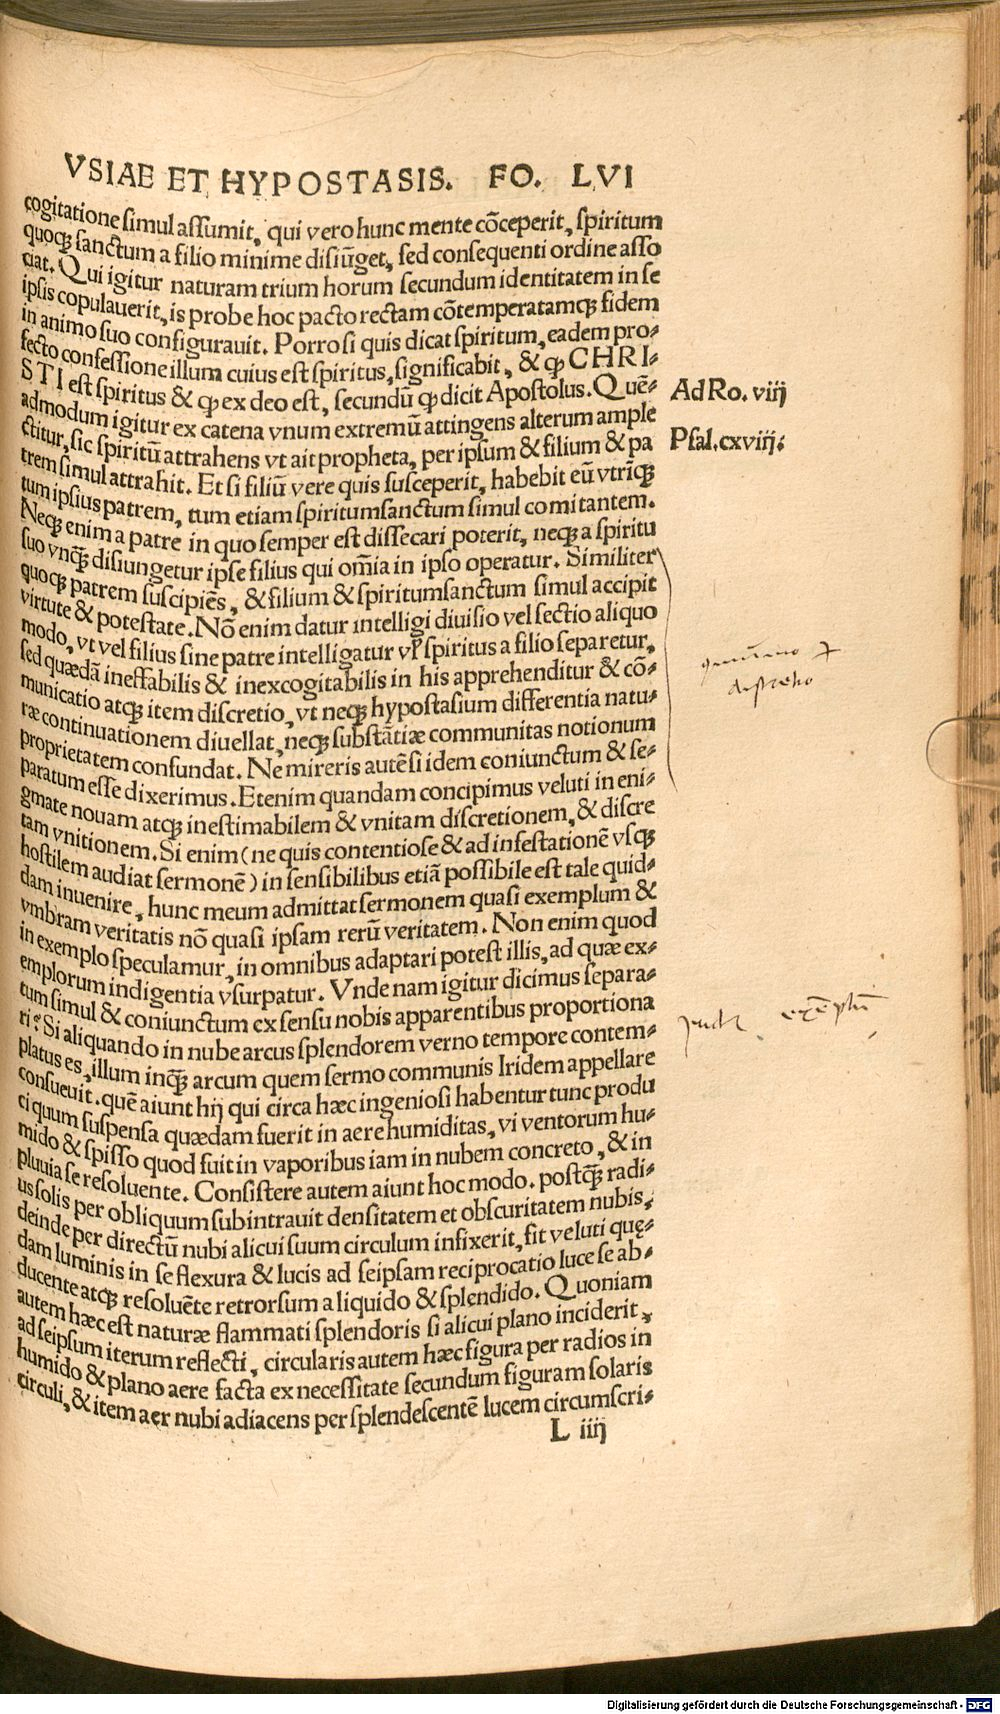 VSIAE ET HYPOSTASIS. FO. LVI
cogitatione simul assumit, qui vero hunc mente cõceperit, spiritum
quoqȝ sanctum a filio minime disiũget, sed consequenti ordine asso
ciat. Qui igitur naturam trium horum secundum identitatem in se
ipsis copulauerit, is probe hoc pacto rectam cõtemperatamqȝ fidem
in animo suo configurauit. Porro si quis dicat spiritum, eadem pro-
fecto confessione illum cuius est spiritus, significabit, & ꝙ CHRI-
STI est spiritus & ꝙ ex deo est, secundũ ꝙ dicit Apostolus. Quē-
Ad Ro. viij
admodum igitur ex catena vnum extremũ attingens alterum ample
ctitur, sic spiritũ attrahens vt ait propheta, per ipsum & filium & pa
Psal. cxviij.
trem simul attrahit. Et si filiũ vere quis susceperit, habebit eũ vtrīqȝ
tum ipsius patrem, tum etiam spiritumsanctum simul comitantem.
Neqȝ enim a patre in quo semper est dissecari poterit, neqȝ a spiritu
suo vnqȝ̃ disiungetur ipse filius qui om̃ia in ipso operatur. Similiter
quoqȝ patrem suscipiēs, & filium & spiritumsanctum simul accipit
virtute & potestate. Nõ enim datur intelligi diuisio vel sectio aliquo
modo, vt vel filius sine patre intelligatur vl̃ spiritus a filio separetur,
sed quædã ineffabilis & inexcogitabilis in his apprehenditur & cõ-
municatio atqȝ item discretio, vt neqȝ hypostasium differentia natu-
ræ continuationem diuellat, neqȝ substãtiæ communitas notionum
proprietatem confundat. Ne mireris autē si idem coniunctum & se-
paratum esse dixerimus. Etenim quandam concipimus veluti in eni-
gmate nouam atqȝ inestimabilem & vnitam discretionem, & discre
tam vnitionem. Si enim (ne quis contentiose & ad infestationē vsqȝ
hostilem audiat sermonē) in sensibilibus etiã possibile est tale quid-
dam inuenire, hunc meum admittat sermonem quasi exemplum &
vmbram veritatis nõ quasi ipsam rerũ veritatem. Non enim quod
in exemplo speculamur, in omnibus adaptari potest illis, ad quæ ex-
emplorum indigentia vsurpatur. Vnde nam igitur dicimus separa-
tum simul & coniunctum ex sensu nobis apparentibus proportiona
ri? Si aliquando in nube arcus splendorem verno tempore contem-
platus es, illum inqȝ̃ arcum quem sermo communis Iridem appellare
consueuit. quē aiunt hij qui circa hæc ingeniosi habentur tunc produ
ci quum suspensa quædam fuerit in aere humiditas, vi ventorum hu-
mido & spisso quod fuit in vaporibus iam in nubem concreto, & in
pluuia se resoluente. Consistere autem aiunt hoc modo. postqȝ̃ radi-
us solis per obliquum subintrauit densitatem et obscuritatem nubis,
deinde per directũ nubi alicui suum circulum infixerit, fit veluti quę-
dam luminis in se flexura & lucis ad seipsam reciprocatio luce se ab-
ducente atqȝ resoluēte retrorsum a liquido & splendido. Quoniam
autem hæc est naturæ flammati splendoris si alicui plano inciderit,
ad seipsum iterum reflecti, circularis autem hæc figura per radios in
humido & plano aere facta ex necessitate secundum figuram solaris
circuli, & item aer nubi adiacens per splendescentē lucem circumscri-
L iiij
Digitalisierung gefördert durch die Deutsche Forschungsgemeinschaft - DFG